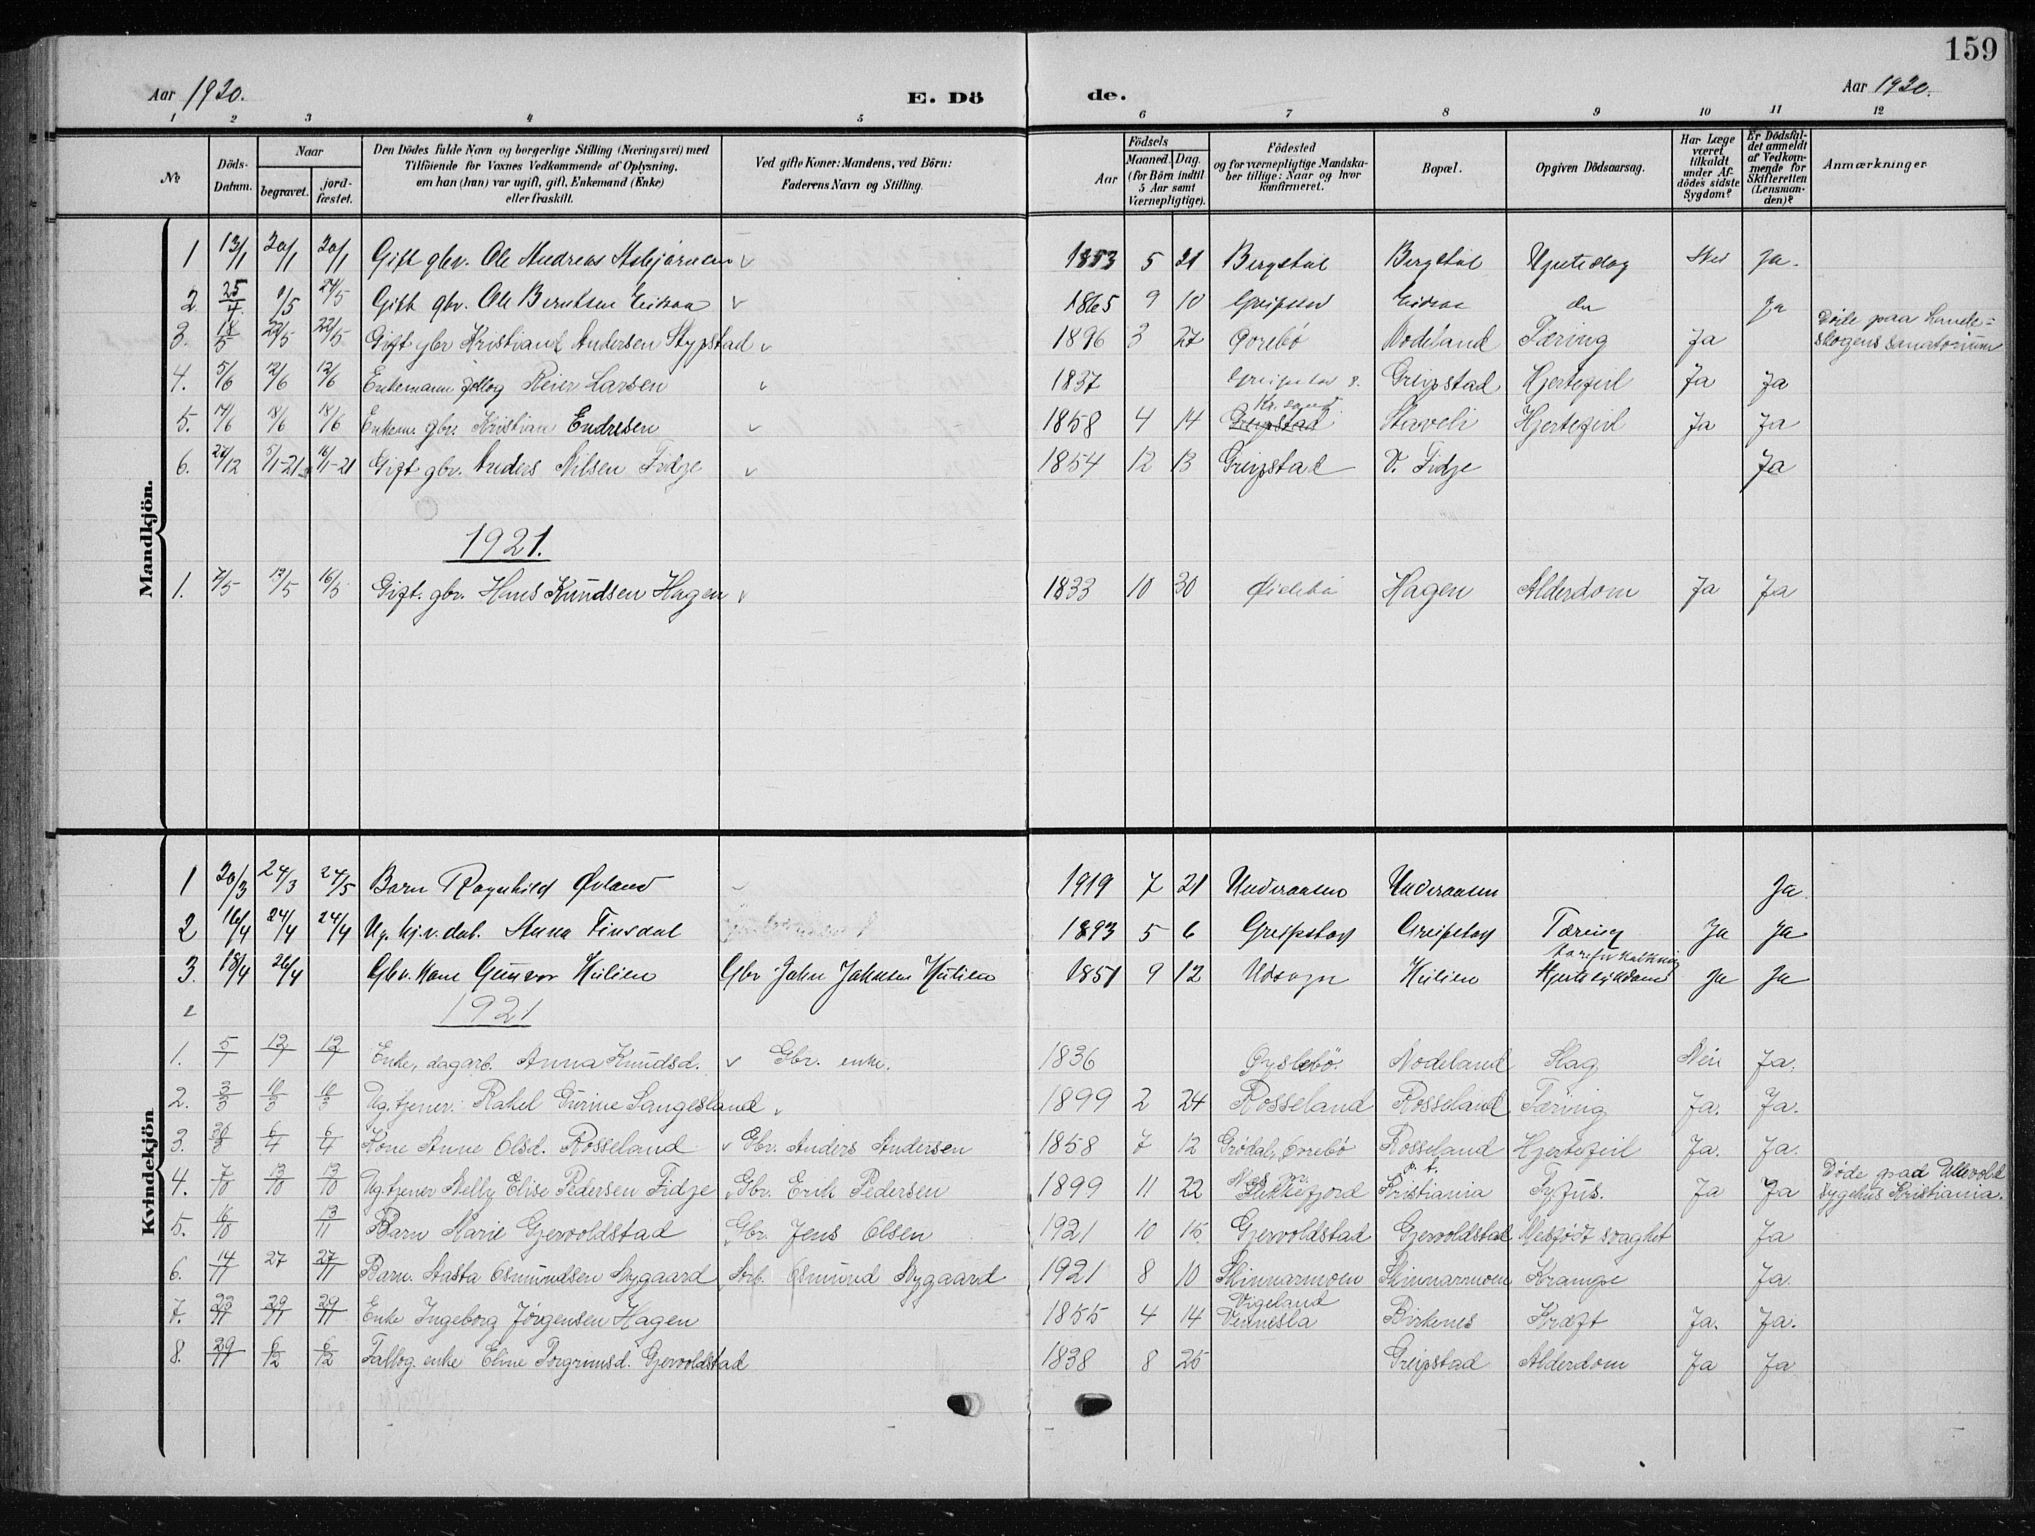 159
Aar 1920. E. Dö de. Aar 1920.
1 2 3 4 5 6 7 8 9 10 11 12
No Döds-Datum. Naar begravet. jord-fæstet. Den Dödes fulde Navn og borgerlige Stilling (Næringsvei) med Tilföiende for Voxnes Vedkommende af Oplysning, om han (hun) var ugift, gift, Enkemand (Enke) eller fraskilt. Ved gifte Koner: Mandens, ved Börn: Faderens Navn og Stilling. Födsels Aar Maaned. Dag. (for Börn indtil 5 Aar samt Værnepligtige). Födested og for værnepligtige Mandskaber tillige: Naar og hvor konfirmeret. Bopæl. Opgiven Dödsaarsag. Har Læge været tilkaldt under Afdödes sidste Sygdom? Er Dödsfaldet anmeldt af Vedkommende for Skifteretten (Lensmanden)? Anmærkninger
Mandkjön.
1 13/1 20/1 20/1 Gift gbr. Ole Andreas Asbjørnsen v 1853 5 21 Bergstøl Bergstøl Hjerteslag Nei Ja.
2. 25/4 9/5 24/5 Gift gbr. Ole Berntsen v 1865 9 10 Greipstad do Ja
3. 18/5 22/5 22/5 Gift gbr Kristian Andersen Stypstad v 1896 3 27 Gorebø Nodeland Tæring Ja Døde paa Lande=
skogens sanatorium
4. 5/6 12/6 12/6 Enkemann follog Reier Larsen v 1837 Greipstad Hjertefeil Ja Ja
Kr. sand
5. 14/6 18/6 18/6 Enkem. gbr. Kristian Endresen v 1858 4 14 Greipstad Stoveli Hjertefeil Ja Ja
6. 27/12 5/1-21 16/1-21 Gift gbr. Anders Nilsen Fidje v 1854 12 13 Greipstad V. Fidje Ja
1921.
1. 7/5 13/5 16/5 Gift. gbr. Hans Knudsen Hagen v 1833 10 30 Øislebø Hagen Alderdom Ja Ja
Kvindekjön
1 20/3 24/3 24/5 Barn Ragnhild Øvland v 1919 7 21 Underaasen Underaasen Ja.
2 16/4 24/4 24/4 Ug. hj.v. dat. Anna Finsdal 1893 5 6 Greipstad Greipstad Tæring Ja Ja
3. 18/4 26/4 Gbr. kone Gunvor Kulien Gbr. John Johnsen Kulien 1851 9 12 Udsogn Kulien Hjertesykdom Ja Ja
1921
1. 5/1 12/1 12/1 Enke, dagarb. Anna Knudsd. v Gbr. enke. 1836 Øyslebø. Nodeland Slag Nei Ja.
2. 3/3 10/3 10/3 Ug. tjener. Rakel Gurine Langesland v 1899 2 24 Rosseland Rosseland Tæring Ja. Ja.
3. 6/4 6/4 Kone Anne Olsd. Rosseland v Gbr. Anders Andersen 1858 7 12 Grødal, Øvrebø Rosseland Hjertefeil Ja. Ja.
4. 7/10 13/10 13/10 Ug. tjener Nelly Elise Pedersen Fidje v Gbr. Erik Pedersen 1899 11 22 Flekkefjord p. t. Kristiania Tyfus. Ja Ja Døde paa Ullevold
sygehus Kristiania.
5. 16/10 13/11 Barn Marie Gjervoldstad Gbr. Jens Olsen 1921 10 15 Gjervoldstad Gjervoldstad Medfødt svaghet Ja
6. 14/11 27 27/11 Barn. Aasta Osmundsen Nygaard Arb. Osmund Nygaard 1921 8 10 Skinnarmoen Skinnarmoen Krampe Ja.
Vigeland
7. 23/11 29/11 29/11 Enke Ingeborg Jørgensen Hagen 1855 4 14 Vennesla Birkenes Kræft Ja. Ja.
8. 29/11 6/12 6/12 Fattog. enke Eline Torgrimsd. Gjervoldstad 1838 8 25 Greipstad Alderdom Ja Ja